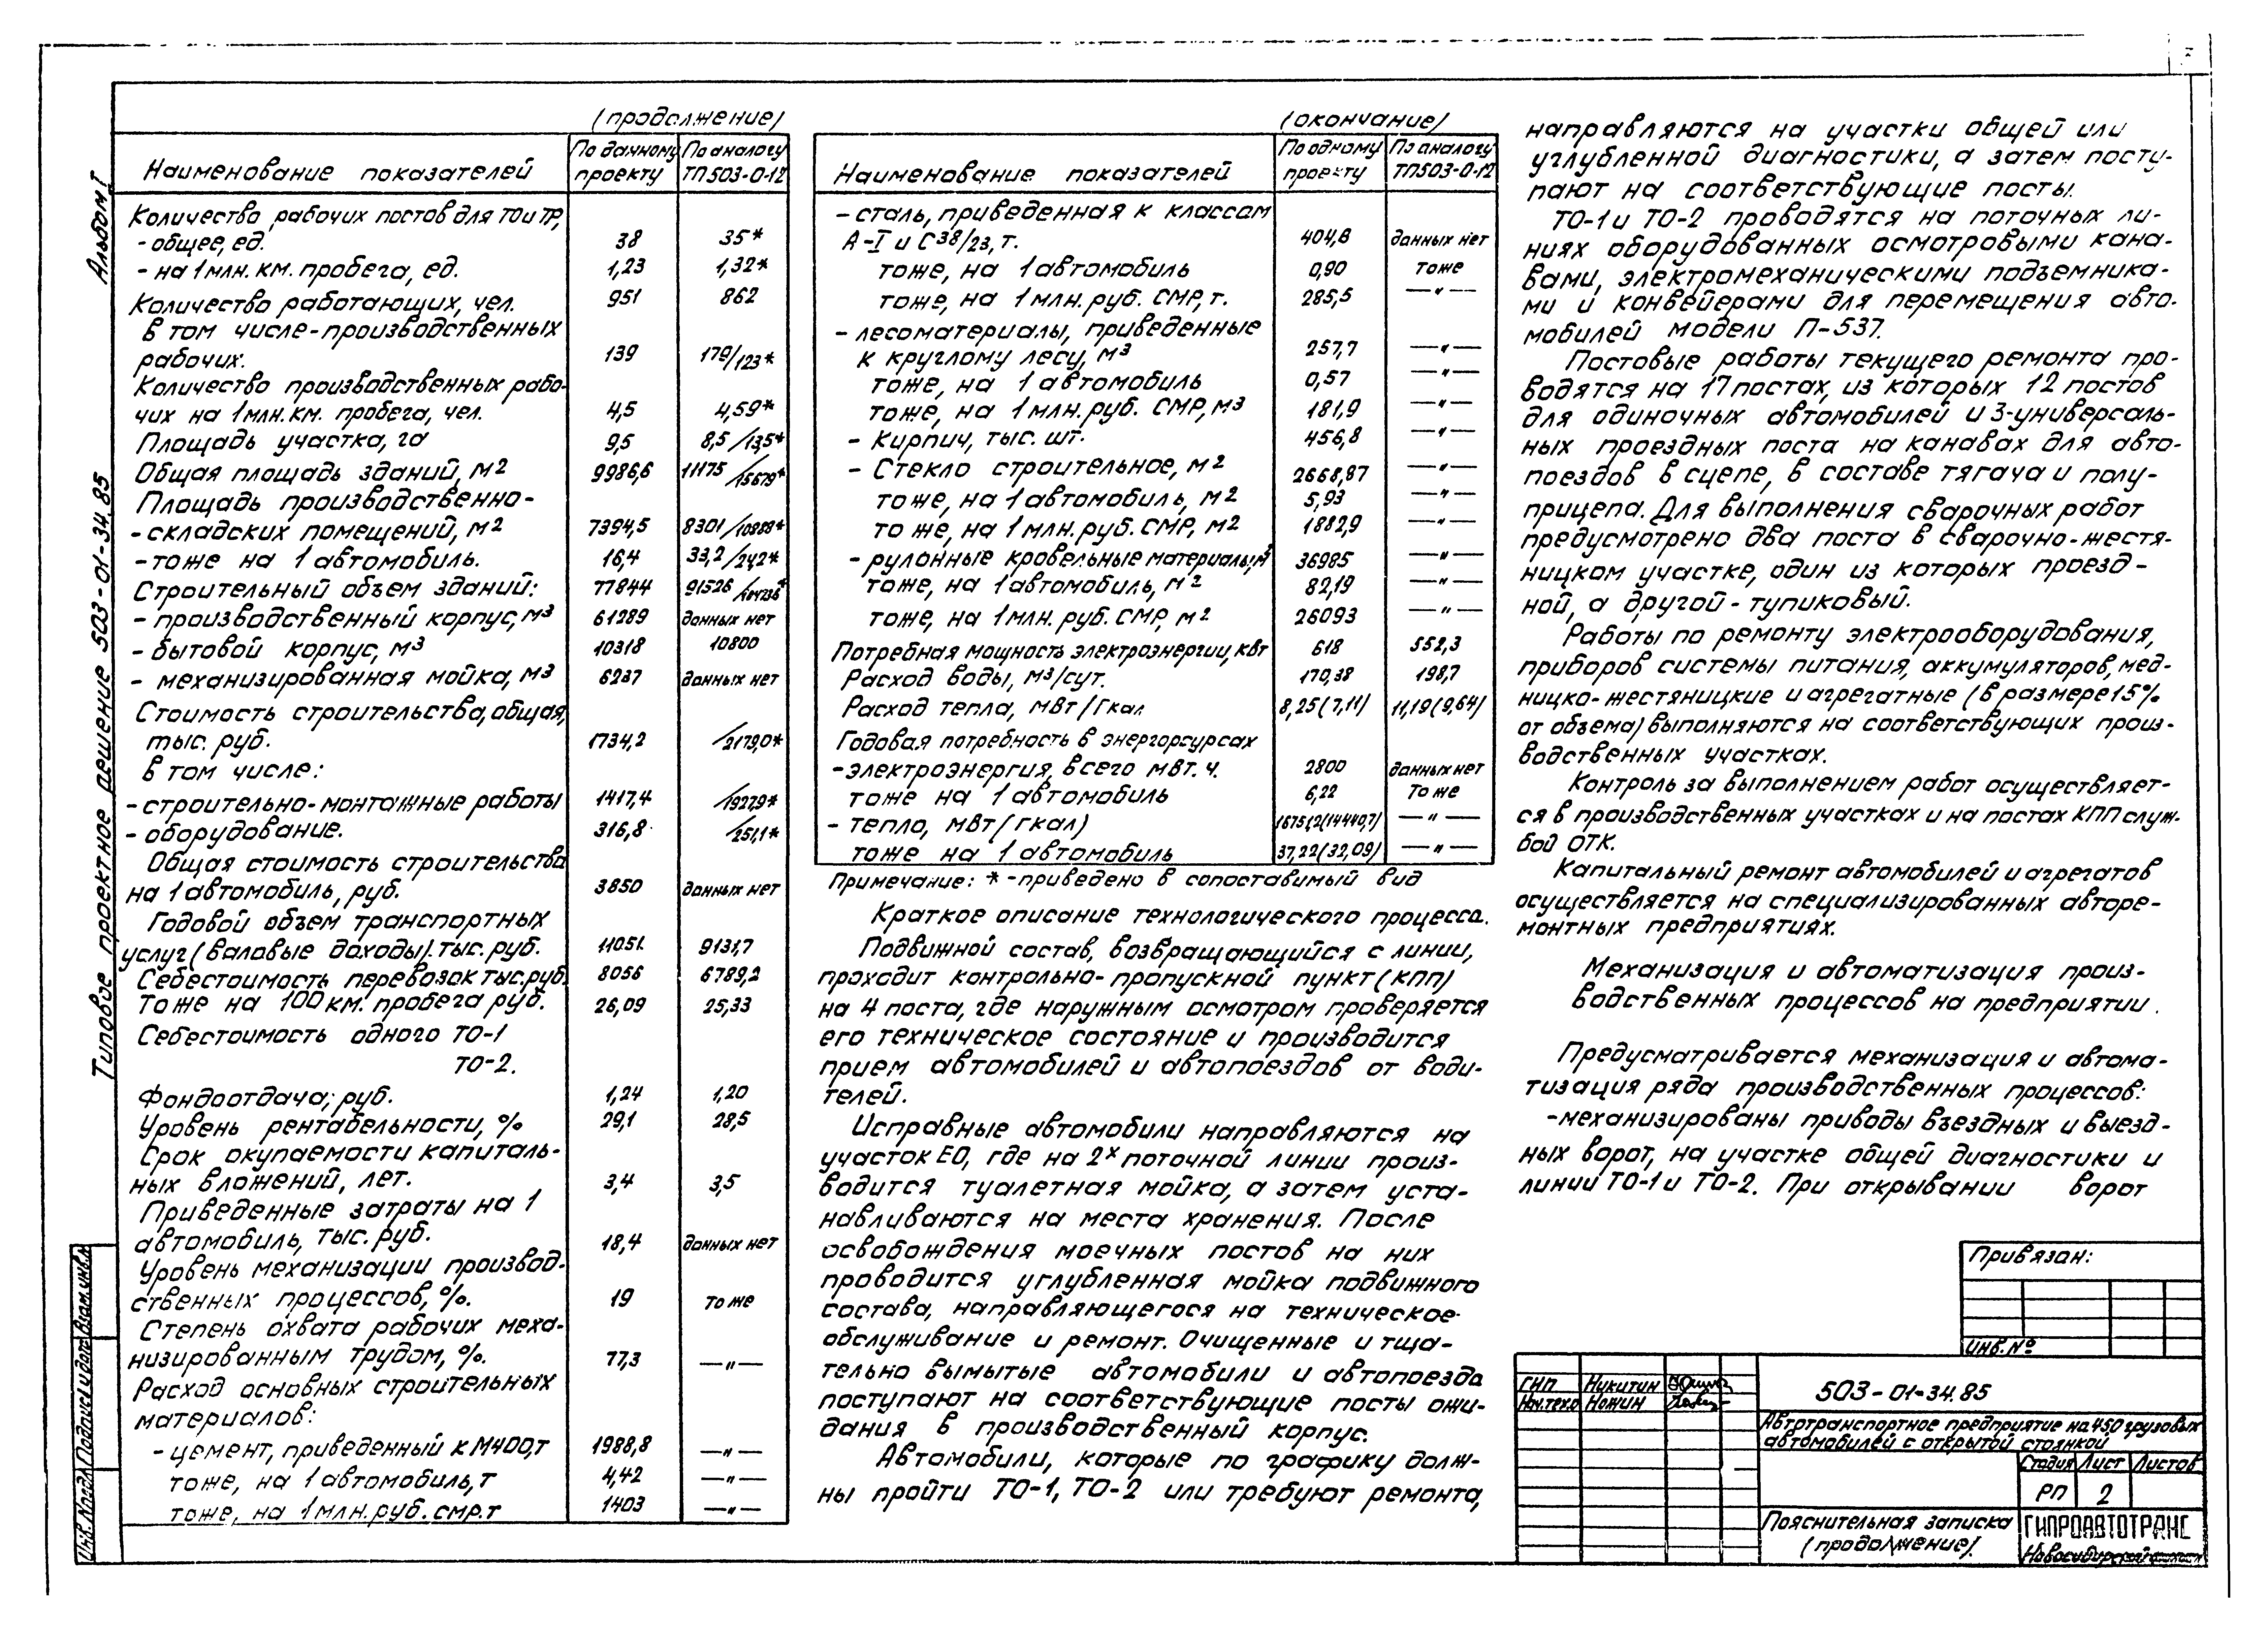 Альбом I
Типовое проектное решение 503-01-34.85
(продолжение)
Наименование показателей По данному проекту По аналогу ТП503-0-12
Количество рабочих постов для ТО и ТР,
- общее, ед. 38 35*
- на 1 млн. км. пробега, ед. 1,23 1,32*
Количество работающих, чел. 951 862
в том числе-производственных
рабочих. 139 179/123*
Количество производственных рабо-
чих на 1 млн. км. пробега, чел. 4,5 4,59*
Площадь участка, га 9,5 8,5/13,5*
Общая площадь зданий, м2 9986,6 11175/15679*
Площадь производственно-
- складских помещений, м2 7394,5 8301/10888*
- тоже на 1 автомобиль. 16,4 33,2/24,2*
Строительный объем зданий: 77844 91526/
- производственный корпус, м3 61289 данных нет
- бытовой корпус, м3 10318 10800
- механизированная мойка, м3 6237 данных нет
Стоимость строительства, общая,
тыс. руб. 1734,2 /2179,0*
в том числе:
- строительно-монтажные работы 1417,4 /1927,9*
- оборудование. 316,8 /251,1*
Общая стоимость строительства
на 1 автомобиль, руб. 3850 данных нет
Годовой объем транспортных
услуг (валовые доходы). тыс. руб. 11051. 9131,7
Себестоимость перевозок тыс. руб. 8056 6789,2
Тоже на 100 км. пробега руб. 26,09 25,33
Себестоимость одного ТО-1
ТО-2.
Фондоотдача; руб. 1,24 1,20
Уровень рентабельности, % 29,1 28,5
Срок окупаемости капиталь-
ных вложений, лет. 3,4 3,5
Приведенные затраты на 1
автомобиль, тыс. руб. 18,4 данных нет
Уровень механизации производ-
ственных процессов, %. 19 тоже
Степень охвата рабочих меха-
низированным трудом, %. 77,3 —"—
Расход основных строительных
материалов:
- цемент, приведенный к М400, т 1988,8 —"—
тоже, на 1 автомобиль, т 4,42 —"—
тоже, на 1 млн. руб. смр. т 1403 —"—
(окончание)
Наименование показателей По одному проекту По аналогу ТП503-0-12
- сталь, приведенная к классам
А-I и С38/23, т. 404,8 данных нет
тоже, на 1 автомобиль 0,90 тоже
тоже, на 1 млн. руб. СМР, т. 285,5 —"—
- лесоматериалы, приведенные
к круглому лесу, м3 257,7 —"—
тоже, на 1 автомобиль 0,57 —"—
тоже, на 1 млн. руб. СМР, м3 181,9 —"—
- Кирпич, тыс. шт. 456,8 —"—
- Стекло строительное, м2 2668,87 —"—
тоже, на 1 автомобиль, м2 5,93 —"—
то же, на 1 млн. руб. СМР, м2 1882,9 —"—
- рулонные кровельные материалы, м2 36985 —"—
тоже, на 1 автомобиль, м2 82,19 —"—
тоже, на 1 млн. руб. СМР, м2 26093 —"—
Потребная мощность электроэнергии, квт 618 552,3
Расход воды, м3/сут. 170,38 198,7
Расход тепла, мвт/Гкал 8,25(7,11) 11,19(9,64)
Годовая потребность в энергорсурсах
- электроэнергия, всего мвт. ч. 2800 данных нет
тоже на 1 автомобиль 6,22 То же
- тепло, мвт (гкал) 16751,2(14440,7) —"—
тоже на 1 автомобиль 37,22(32,09) —"—
Примечание: * -приведено в сопоставимый вид
Краткое описание технологического процесса.
Подвижной состав, возвращающийся с линии,
проходит контрольно-пропускной пункт (КПП)
на 4 поста, где наружным осмотром проверяется
его техническое состояние и производится
прием автомобилей и автопоездов от води-
телей.
Исправные автомобили направляются на
участок ЕО, где на 2х поточной линии произ-
водится туалетная мойка, а затем уста-
навливаются на места хранения. После
освобождения моечных постов на них
проводится углубленная мойка подвижного
состава, направляющегося на техническое
обслуживание и ремонт. Очищенные и тща-
тельно вымытые автомобили и автопоезда
поступают на соответствующие посты ожи-
дания в производственный корпус.
Автомобили, которые по графику долж-
ны пройти ТО-1, ТО-2 или требуют ремонта,
направляются на участки общей или
углубленной диагностики, а затем посту-
пают на соответствующие посты.
ТО-1 и ТО-2 проводятся на поточных ли-
ниях оборудованных осмотровыми кана-
вами, электромеханическими подъемника-
ми и конвейерами для перемещения авто-
мобилей модели П-537.
Постовые работы текущего ремонта про-
водятся на 17 постах, из которых 12 постов
для одиночных автомобилей и 3-универсаль-
ных проездных поста на канавах для авто-
поездов в сцепе, в составе тягача и полу-
прицепа. Для выполнения сварочных работ
предусмотрено два поста в сварочно-жестя-
ницком участке, один из которых проезд-
ной, а другой-тупиковый.
Работы по ремонту электрооборудования,
приборов системы питания, аккумуляторов, мед-
ницко-жестяницкие и агрегатные (в размере 15%
от объема) выполняются на соответствующих произ-
водственных участках.
Контроль за выполнением работ осуществляет-
ся в производственных участках и на постах КПП служ-
бой ОТК.
Капитальный ремонт автомобилей и агрегатов
осуществляется на специализированных авторе-
монтных предприятиях.
Механизация и автоматизация произ-
водственных процессов на предприятии.
Предусматривается механизация и автома-
тизация ряда производственных процессов:
-механизированы приводы въездных и выезд-
ных ворот, на участке общей диагностики и
линии ТО-1 и ТО-2. При открывании ворот
Привязан:
Инв. №
ГИП Никитин
Нач.тех.о Ножин
503-01-34.85
Автотранспортное предприятие на 450 грузовых
автомобилей с открытой стоянкой
Стадия Лист Листов
РП 2
Пояснительная записка
(продолжение).
ГИПРОАВТОТРАНС
Новосибирский филиал
Инв. № подл. Подпись и дата Взам. инв. №